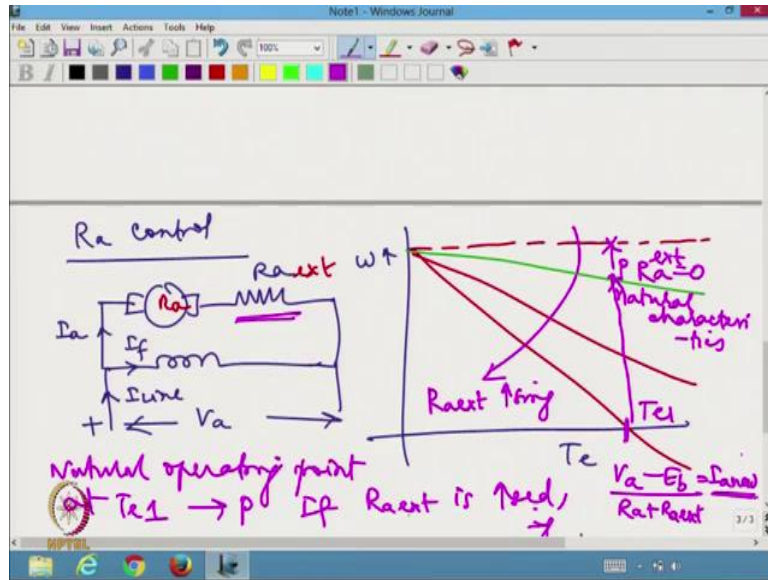 Note1 - Windows Journal
File Edit View Insert Actions Tools Help
100%
B I
Ra control
Ra ext
Ra
Ia
If
Iline
+ Va
ω↑
ext
P Ra=0
Natural
characteri
-tics
Raext ↑sing
Te1
Te
Natural operating point
at Te1 → P If Raext is ↑sed,
Va - Eb = Ianew
Ra+Raext
3/3
NPTEL